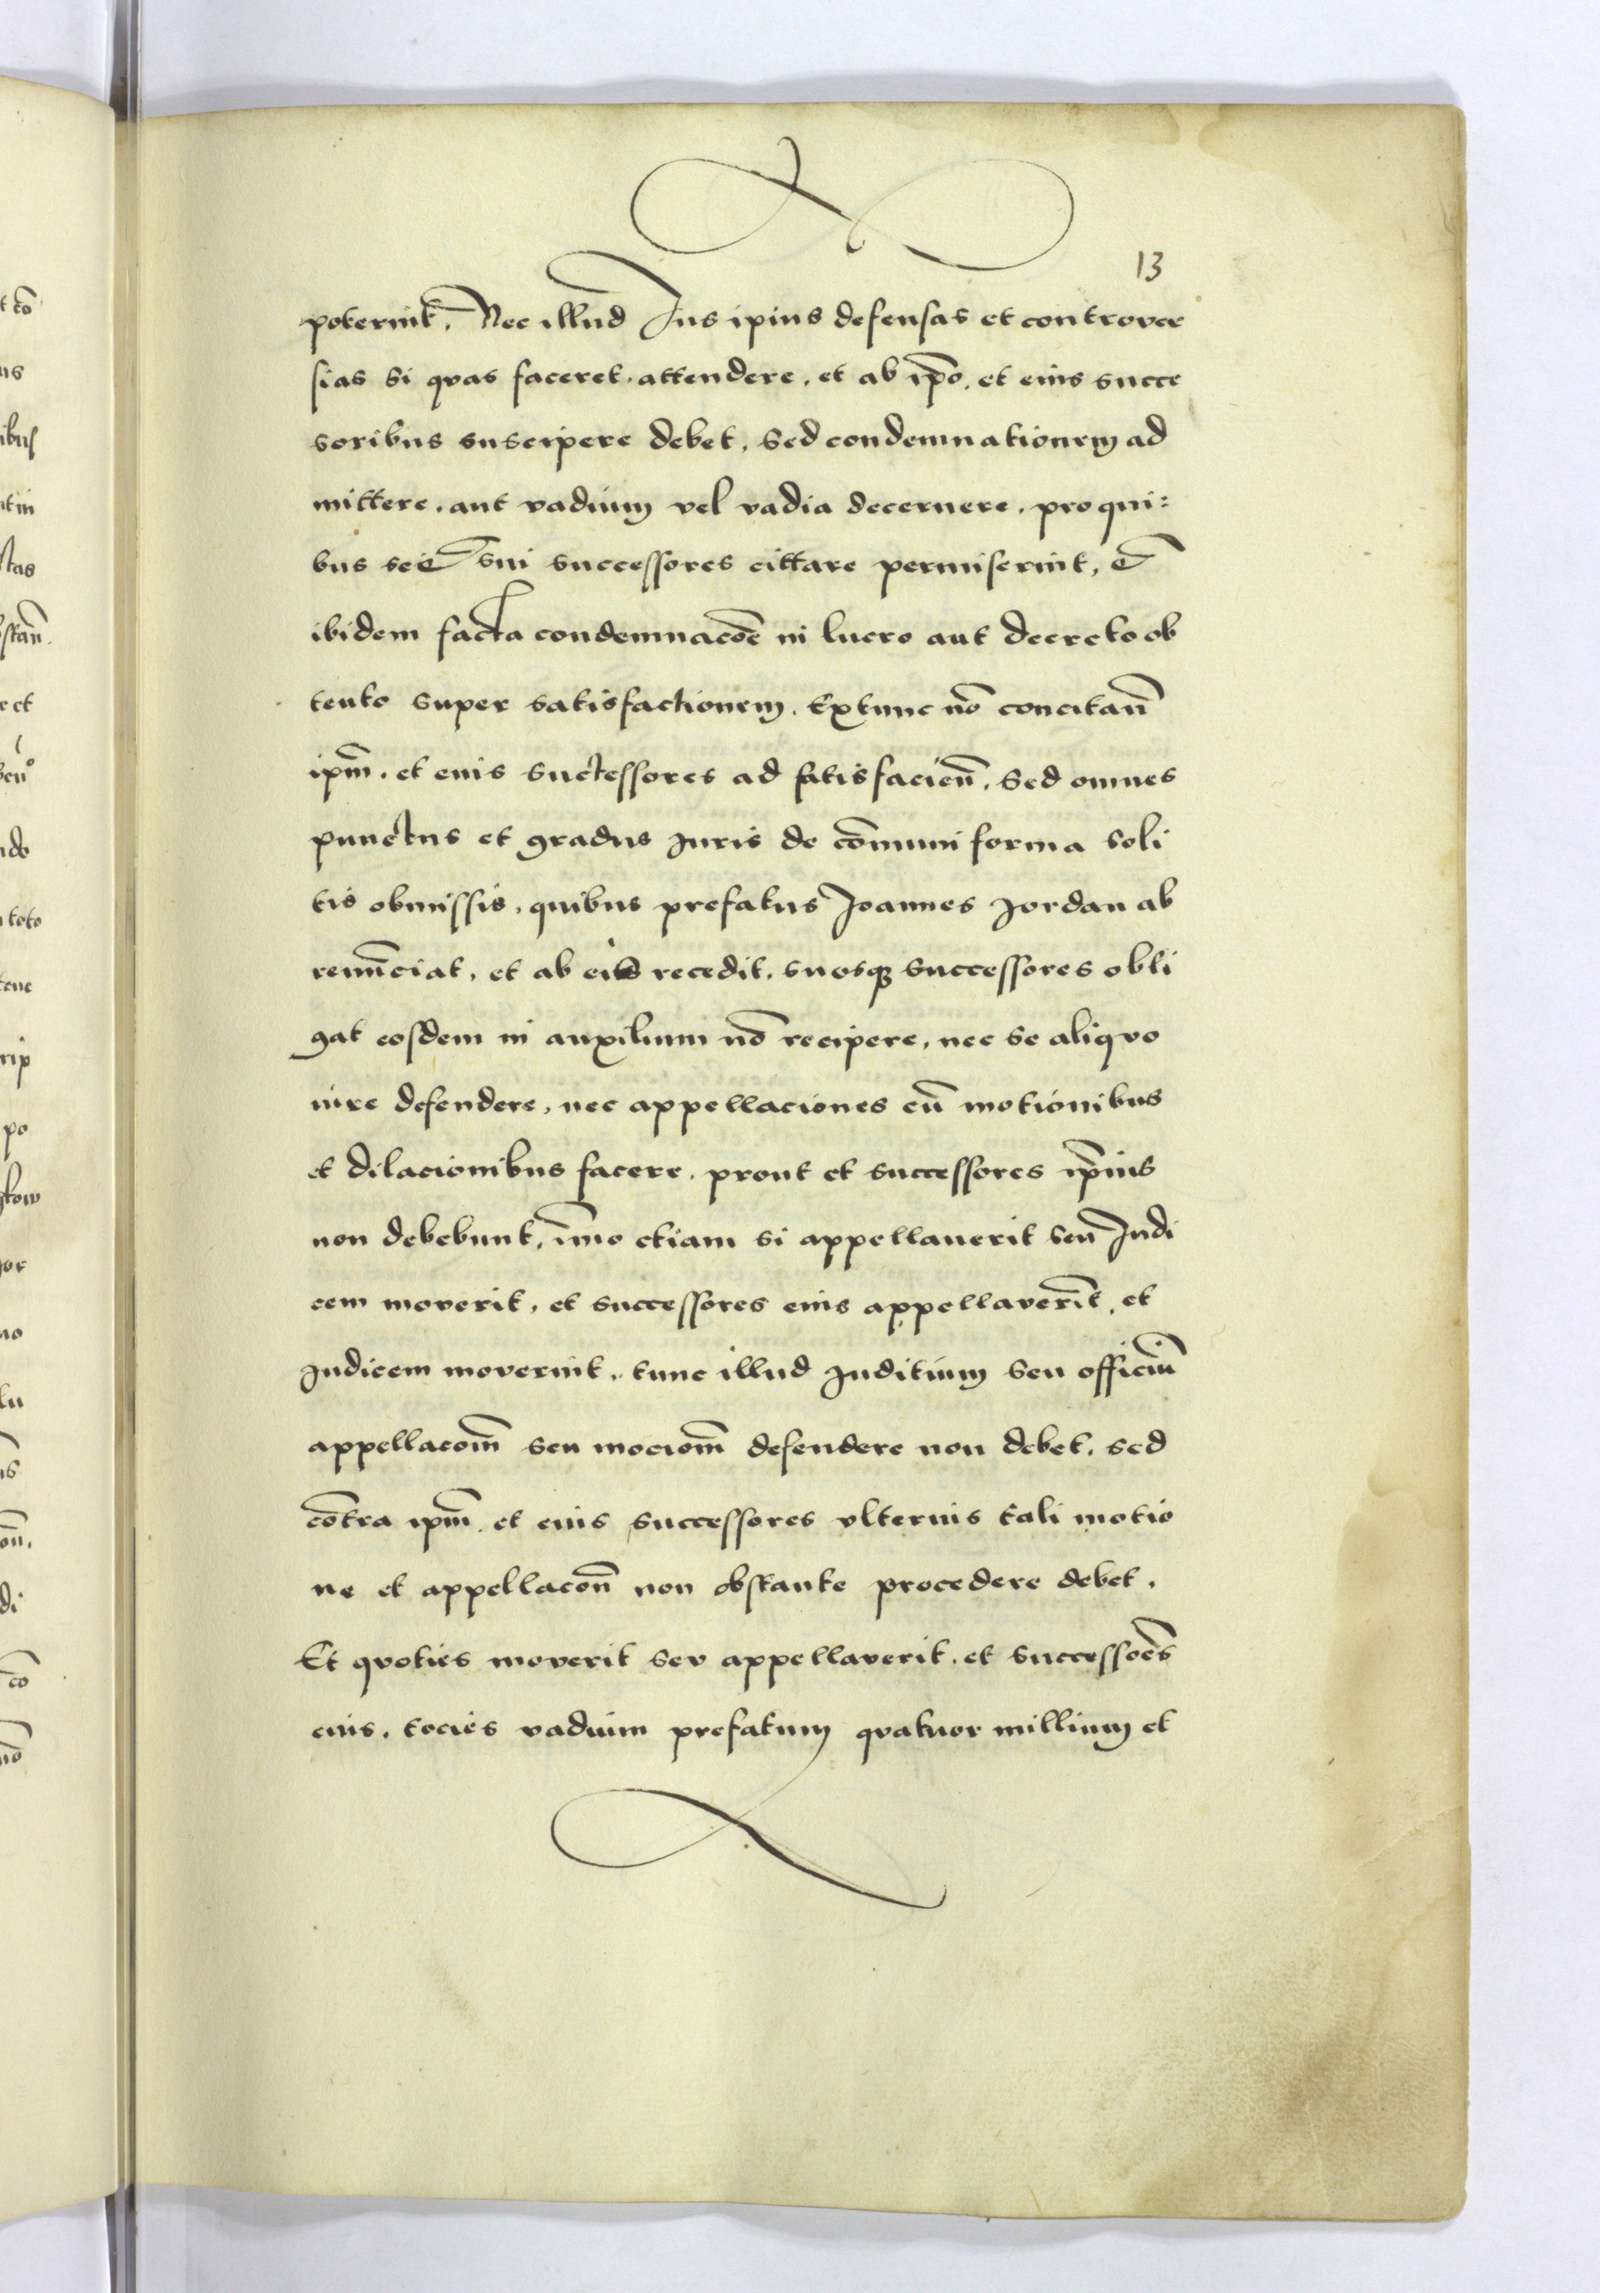 13
poterint. Nec illud Jus ipius defensas et controver
sias si qvas faceret. attendere. et ab ip̄o. et eius succe
soribus suscipere debet. sed condemnationem ad
mittere. aut vadium vel vadia decernere. pro qui:
bus se et sui successores cittare permiserint, et
ibidem facta condemnacōe in lucro aut decreto ob
tento super satisfactionem. Extunc nō concitan̄
ip̄m. et eius suctessores ad satisfacien̄. sed omnes
punctus et gradus Juris de cōmuni forma soli
tis obmissis. quibus prefatus Joannes Jordan ab
renūciat. et ab eis recedit. suosq; successores obli
gat eosdem in auxilium nō recipere, nec se aliqvo
iure defendere, nec appellaciones cū motionibus
et dilacionibus facere. prout et successores ip̄ius
non debebunt. īmo etiam si appellauerit seu Judi
cem moverit, et successores eius appellaverīt. et
Judicem moverint. tunc illud Juditium seu officiū
appellacōm seu mociōm defendere non debet. sed
cōtra ip̄m et eius successores vlterius tali motio
ne et appellacōn non obstante procedere debet.
Et qvoties moverit sev appellaverit. et successoēs
eius. tocies vadium prefatum qvatuor millium et